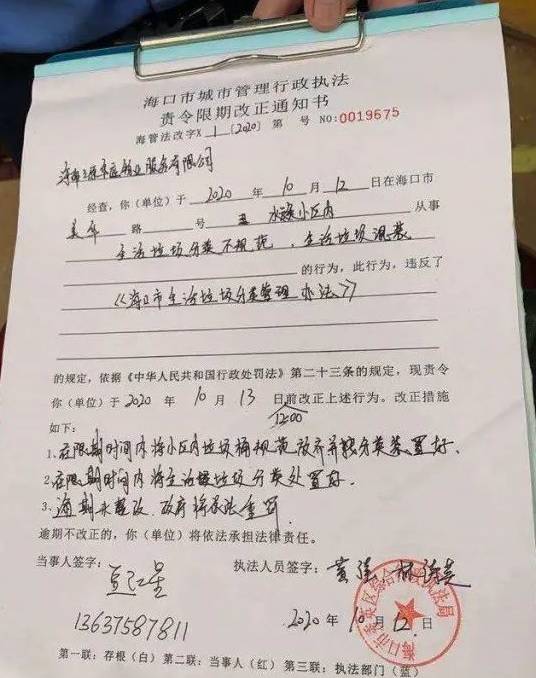 海口市城市管理行政执法
责令限期改正通知书
海管法改字X 1 [2020] 第 号 NO:0019675
业服务有限公司
经查,你(单位)于 2020 年 10 月 12 日在海口市
美华 路 号 水 小区内 从事
生活垃圾分类不规范、生活垃圾混装
的行为,此行为,违反了
《海口市生活垃圾分类管理办法》
的规定,依据《中华人民共和国行政处罚法》第二十三条的规定,现责令
你(单位)于 2020 年 10 月 13 日前改正上述行为。改正措施
12:00
如下:
1、在限期时间内将小区内垃圾桶规范放齐并按分类装置好.
2、在限期时间内将生活垃圾分类处置好.
3、逾期未整改,政府将依法重罚
逾期不改正的,你(单位)将依法承担法律责任。
当事人签字: 执法人员签字:
红星
13637587811
2020 年 10 月 12 日
海口市秀英区综合行政执法局
第一联:存根(白) 第二联:当事人(红) 第三联:执法部门(蓝)